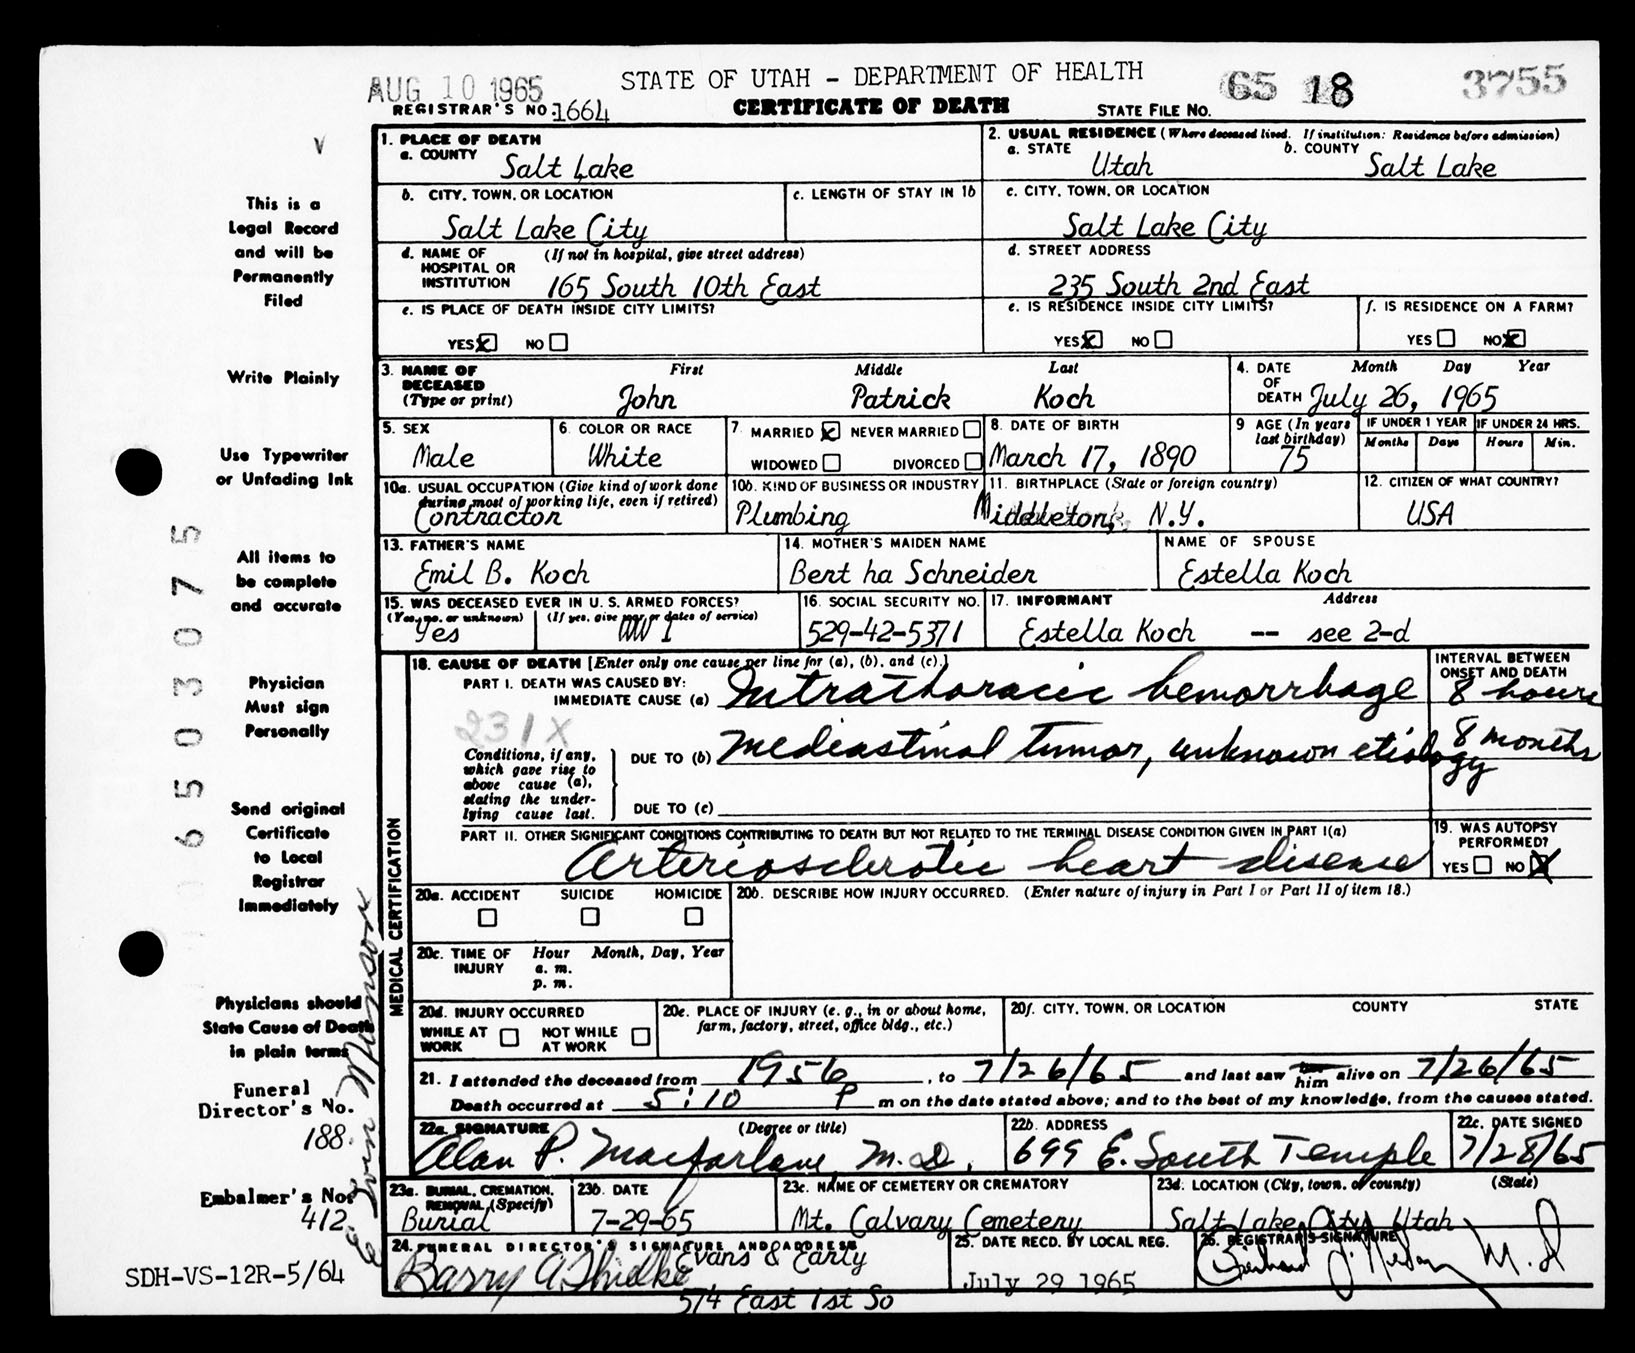 AUG 10 1965
STATE OF UTAH - DEPARTMENT OF HEALTH
65 18 3755
REGISTRAR'S NO. 1664
CERTIFICATE OF DEATH
STATE FILE NO.
This is a
Legal Record
and will be
Permanently
Filed
Write Plainly
Use Typewriter
or Unfading Ink
All items to
be complete
and accurate
Physician
Must sign
Personally
Send original
Certificate
to Local
Registrar
Immediately
Physicians should
State Cause of Death
in plain terms
Funeral
Director's No.
188
Embalmer's No.
412
E. Ivin Munson
SDH-VS-12R-5/64
650307 5
1. PLACE OF DEATH
a. COUNTY
Salt Lake
2. USUAL RESIDENCE (Where deceased lived. If institution: Residence before admission)
a. STATE
Utah
b. COUNTY
Salt Lake
b. CITY, TOWN, OR LOCATION
Salt Lake City
c. LENGTH OF STAY IN 1b
c. CITY, TOWN, OR LOCATION
Salt Lake City
d. NAME OF HOSPITAL OR INSTITUTION
(If not in hospital, give street address)
165 South 10th East
d. STREET ADDRESS
235 South 2nd East
e. IS PLACE OF DEATH INSIDE CITY LIMITS?
YES NO
e. IS RESIDENCE INSIDE CITY LIMITS?
YES NO
f. IS RESIDENCE ON A FARM?
YES NO
3. NAME OF DECEASED (Type or print)
First Middle Last
John Patrick Koch
4. DATE OF DEATH
Month Day Year
July 26, 1965
5. SEX
Male
6. COLOR OR RACE
White
7. MARRIED NEVER MARRIED
WIDOWED DIVORCED
8. DATE OF BIRTH
March 17, 1890
9 AGE (In years last birthday)
75
IF UNDER 1 YEAR
Months Days
IF UNDER 24 HRS.
Hours Min.
10a. USUAL OCCUPATION (Give kind of work done during most of working life, even if retired)
Contractor
10b. KIND OF BUSINESS OR INDUSTRY
Plumbing
11. BIRTHPLACE (State or foreign country)
Middleton, N.Y.
12. CITIZEN OF WHAT COUNTRY?
USA
13. FATHER'S NAME
Emil B. Koch
14. MOTHER'S MAIDEN NAME
Bertha Schneider
NAME OF SPOUSE
Estella Koch
15. WAS DECEASED EVER IN U. S. ARMED FORCES?
(Yes, no, or unknown) (If yes, give war or dates of service)
Yes WW I
16. SOCIAL SECURITY NO.
529-42-5371
17. INFORMANT Address
Estella Koch -- see 2-d
MEDICAL CERTIFICATION
18. CAUSE OF DEATH [Enter only one cause per line for (a), (b), and (c).]
INTERVAL BETWEEN ONSET AND DEATH
PART I. DEATH WAS CAUSED BY:
IMMEDIATE CAUSE (a) Intrathoracic hemorrhage 8 hours
231X
Conditions, if any, which gave rise to above cause (a), stating the underlying cause last.
DUE TO (b) Mediastinal tumor, unknown etiology 8 months
DUE TO (c)
PART II. OTHER SIGNIFICANT CONDITIONS CONTRIBUTING TO DEATH BUT NOT RELATED TO THE TERMINAL DISEASE CONDITION GIVEN IN PART I(a)
Arteriosclerotic heart disease
19. WAS AUTOPSY PERFORMED?
YES NO
20a. ACCIDENT SUICIDE HOMICIDE
20b. DESCRIBE HOW INJURY OCCURRED. (Enter nature of injury in Part I or Part II of item 18.)
20c. TIME OF INJURY
Hour Month, Day, Year
a. m.
p. m.
20d. INJURY OCCURRED
WHILE AT WORK NOT WHILE AT WORK
20e. PLACE OF INJURY (e. g., in or about home, farm, factory, street, office bldg., etc.)
20f. CITY, TOWN, OR LOCATION COUNTY STATE
21. I attended the deceased from 1956, to 7/26/65 and last saw him alive on 7/26/65
Death occurred at 5:10 P m on the date stated above; and to the best of my knowledge, from the causes stated.
22a. SIGNATURE (Degree or title)
Alan P. Macfarlane, M.D.
22b. ADDRESS
699 E. South Temple
22c. DATE SIGNED
7/28/65
23a. BURIAL, CREMATION, REMOVAL (Specify)
Burial
23b. DATE
7-29-65
23c. NAME OF CEMETERY OR CREMATORY
Mt. Calvary Cemetery
23d. LOCATION (City, town, or county) (State)
Salt Lake City Utah
24. FUNERAL DIRECTOR'S SIGNATURE AND ADDRESS
Barry A Evans & Early
574 East 1st So
25. DATE RECD. BY LOCAL REG.
July 29 1965
26. REGISTRAR'S SIGNATURE
M.D